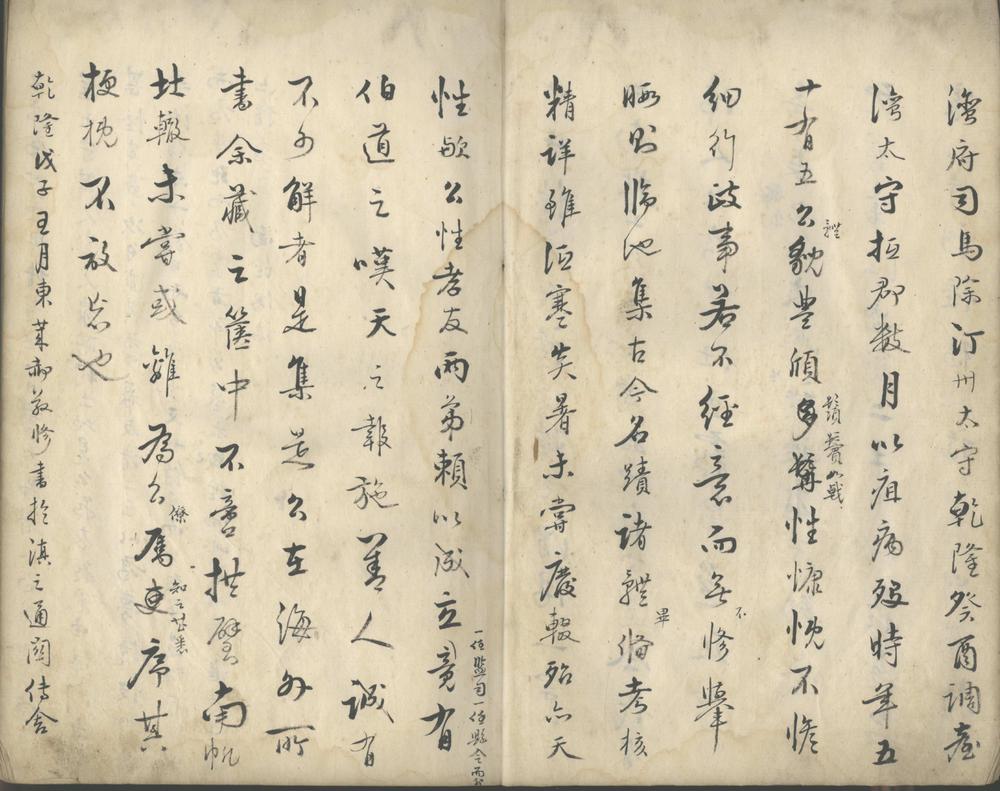 灣府司馬除汀州太守乾隆癸酉調臺
灣太守抵郡數月以疽病歿時年五
十有五公體貌豐頎多鬚髯如戟性慷慨不憺
細行政事若不經意而無不修舉
暇則臨池集古今名蹟諸體畢備考核
精詳雖沍寒失暑未嘗廢輟殆亦天
性歟公性孝友兩弟賴以成立一任監司一任縣令竟有
伯道之嘆天之報施善人誠有
不可解者是集是公在海外所
書余藏之篋中不啻拱璧南帆
北轍未嘗或離為公僚屬知之甚悉序其
梗概不敢忘也
乾隆戊子五月東萊敬修書於滇之通關傳舍